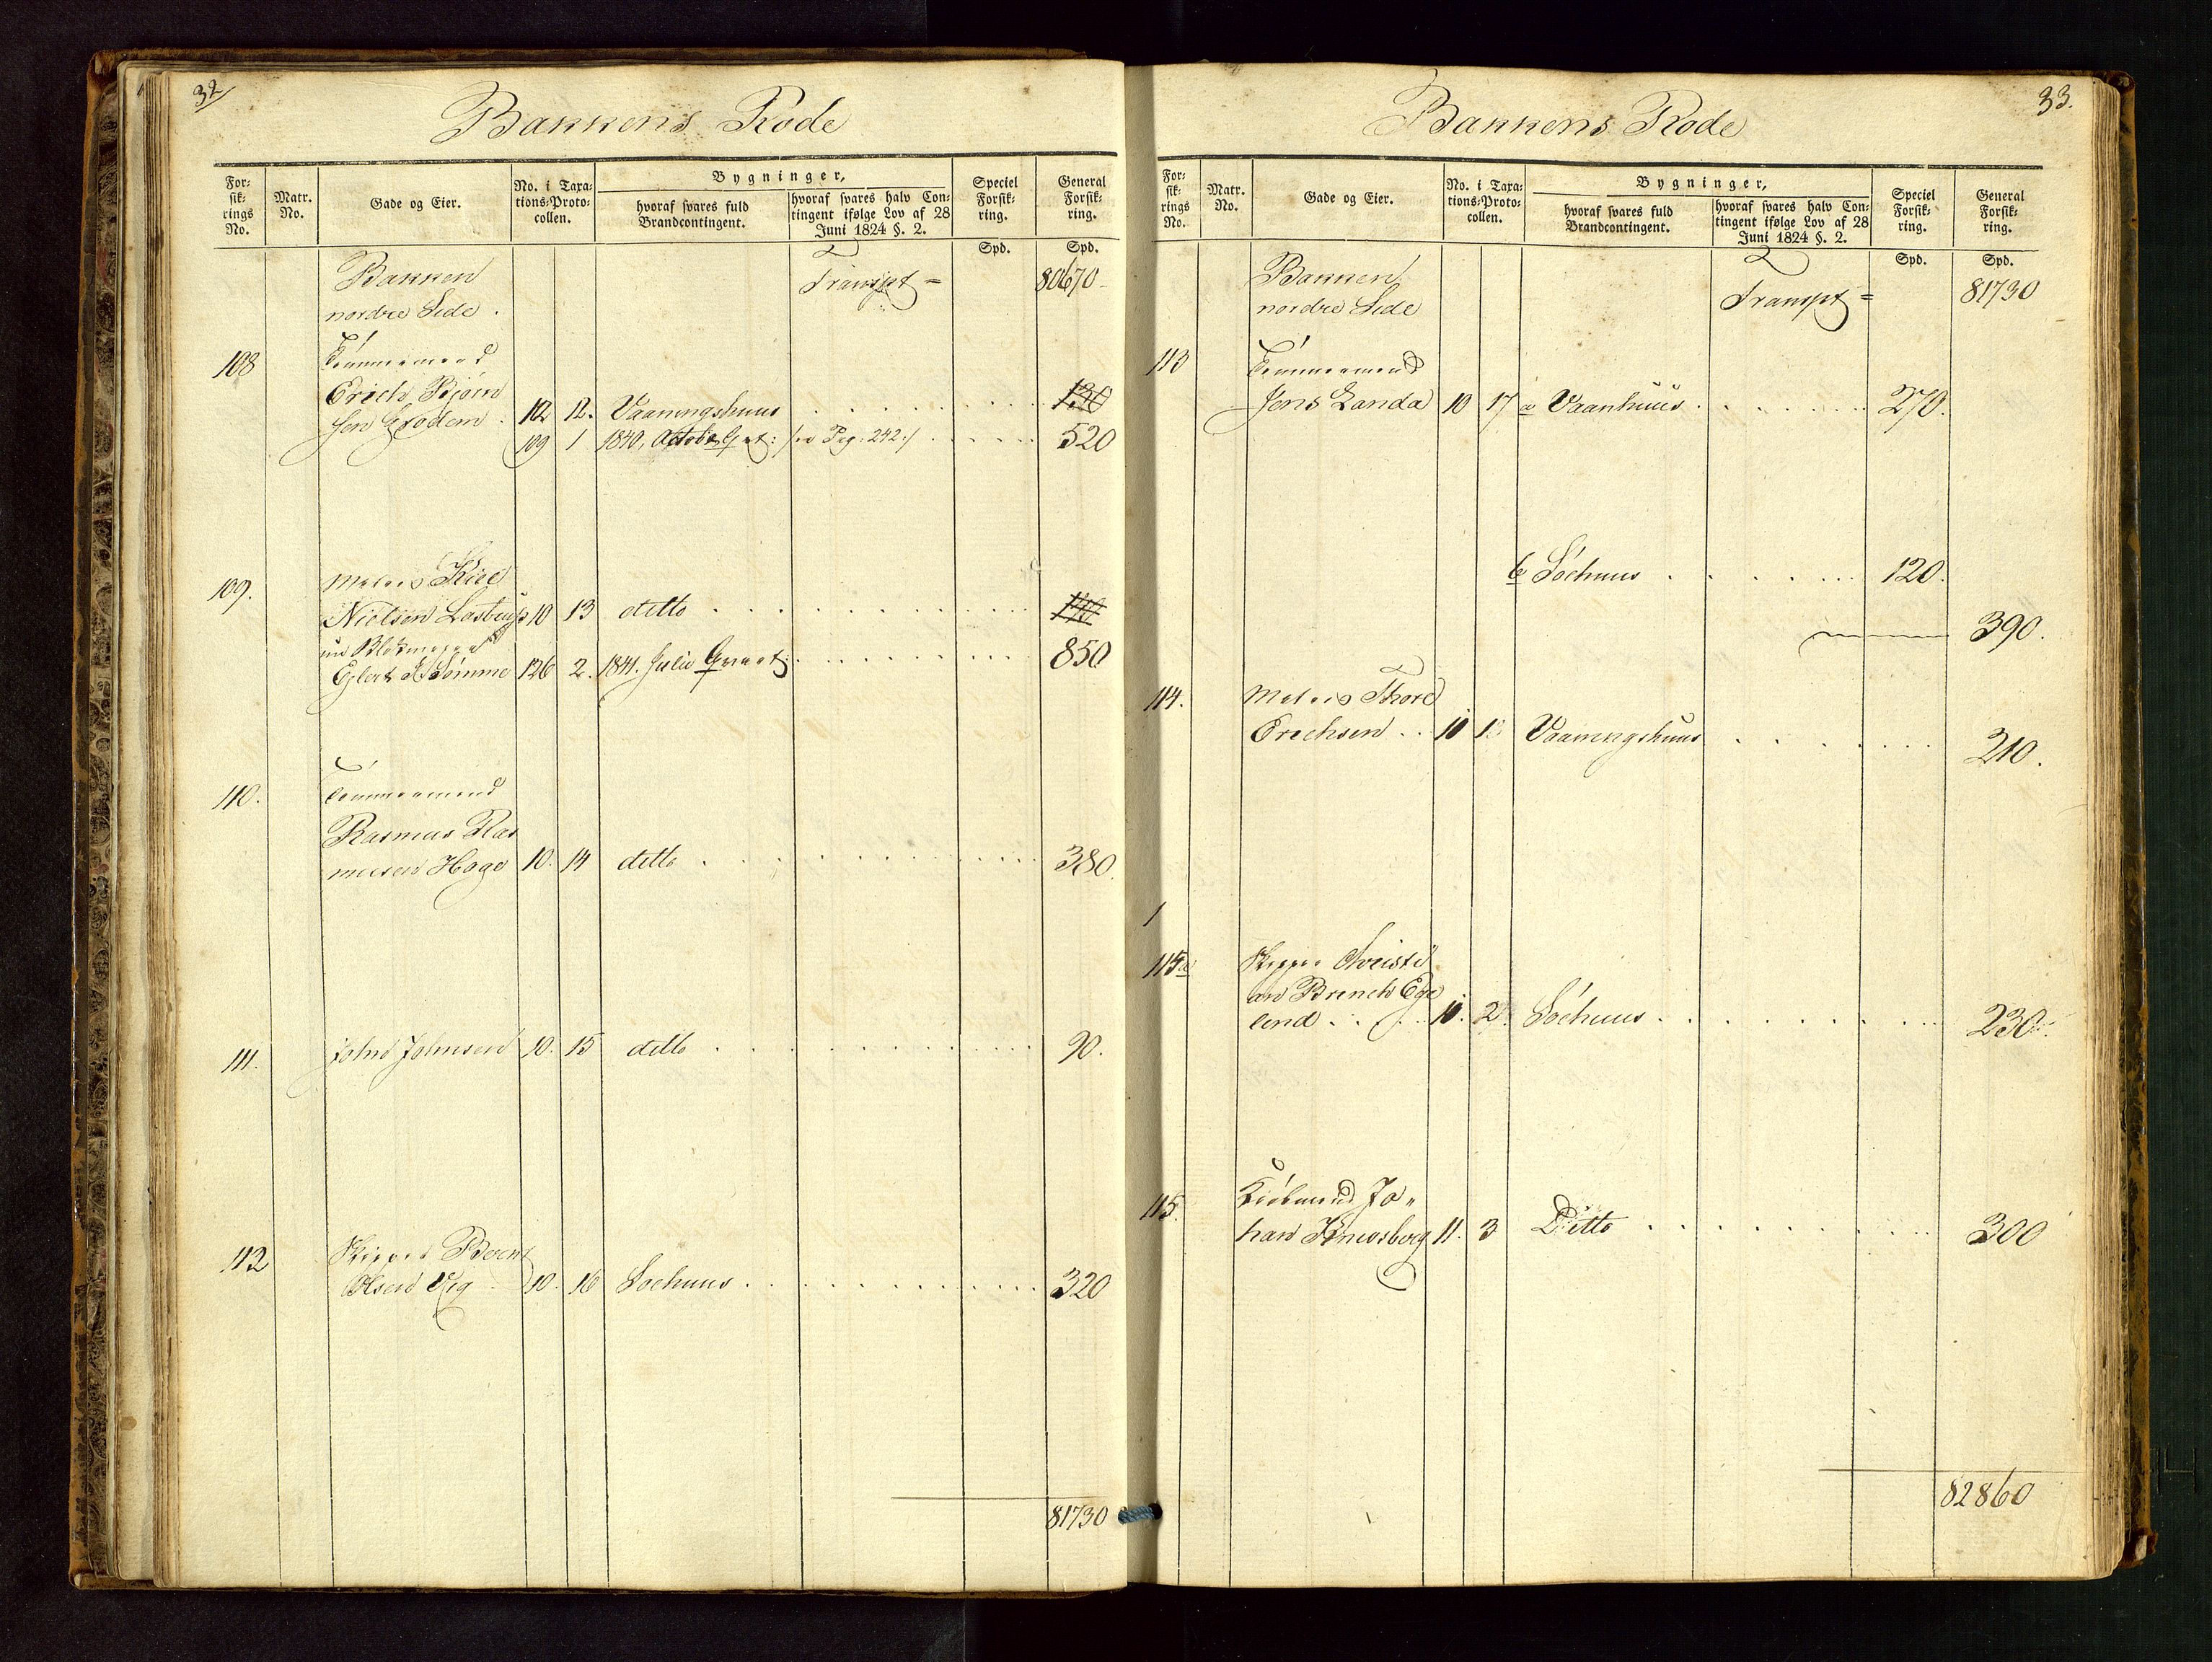 32
Bakkens Rode
For-
sik-
rings
No.
Matr.
No.
Gade og Eier.
No. i Taxa-
tions-Proto-
collen.
Bygninger,
hvoraf svares fuld
Brandcontingent.
hvoraf svares halv Con-
tingent ifølge Lov af 28
Juni 1824 §. 2.
Speciel
Forsik-
ring.
General
Forsik-
ring.
Spd. Spd.
Bakken Transpt = 80670
nordre Side.
108 Tømmermand
Erich Bjørn
sen Grødem. 10 12. Vaaningshuus
109 1 1840, Octobr Qvt: /: Pag: 242:/ 520
109. Matros Kiel
Nielsen Lastrup 10 13 ditto
nu Blokmager
Eglert S Sømme 126 2. 1841. Julii Qvart: 850
110. Tømmermand
Rasmus Ras
musen Hoge 10. 14 ditto 380.
111. John Johnsen 10. 15 ditto 90.
112 Skipper Bernt
Olsen Vig 10. 16 Søehuus 320
81730
33.
Bakkens Rode
For-
sik-
rings
No.
Matr.
No.
Gade og Eier.
No. i Taxa-
tions-Proto-
collen.
Bygninger,
hvoraf svares fuld
Brandcontingent.
hvoraf svares halv Con-
tingent ifølge Lov af 28
Juni 1824 §. 2.
Speciel
Forsik-
ring.
General
Forsik-
ring.
Spd. Spd.
Bakken Transpt = 81730
nordre Side
113 Tømmermand
Jens Landa 10 17 a Vaanhuus 270.
b Søehuus 120.
390.
114. Matros Thore
Erichsen Vaaningshuus 210.
1
115a Skipper Christi
an Brinch Ege
lend 2. Søehuus 230.
115. Kiøbmand Jo-
han Kinosberg 11. 3 Ditto 300
82860